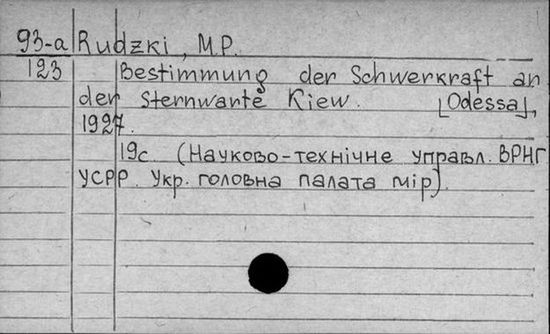 93-a Rudzki, M.P.
123 Bestimmung der Schwerkraft an
der Sternwarte Kiew. [Odessa],
1927.
19с. (Науково-технічне управл. ВРНГ
УСРР. Укр. головна палата мір).